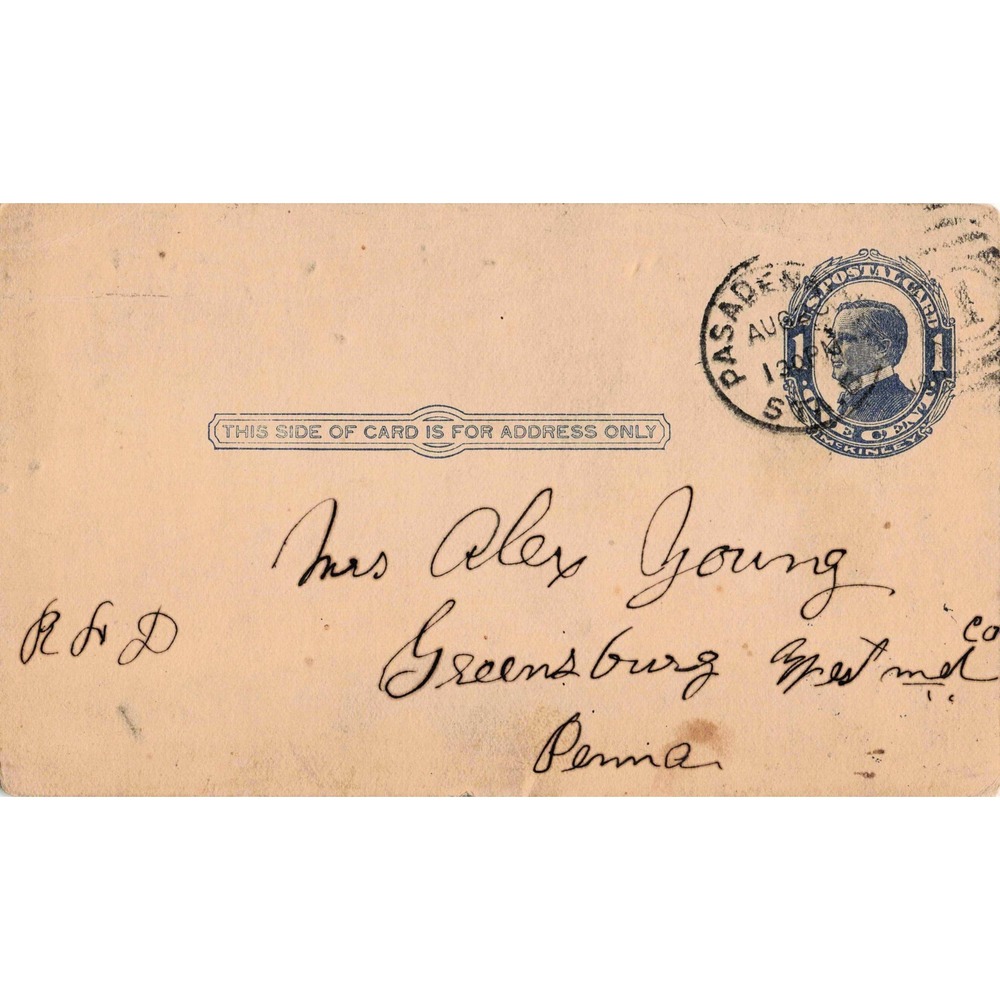 U.S. POSTAL CARD
1 1
ONE CENT
McKINLEY
PASADENA
AUG
1 30 PM
THIS SIDE OF CARD IS FOR ADDRESS ONLY
Mrs Alex Young
R F D
Greensburg Westmd Co
Penna